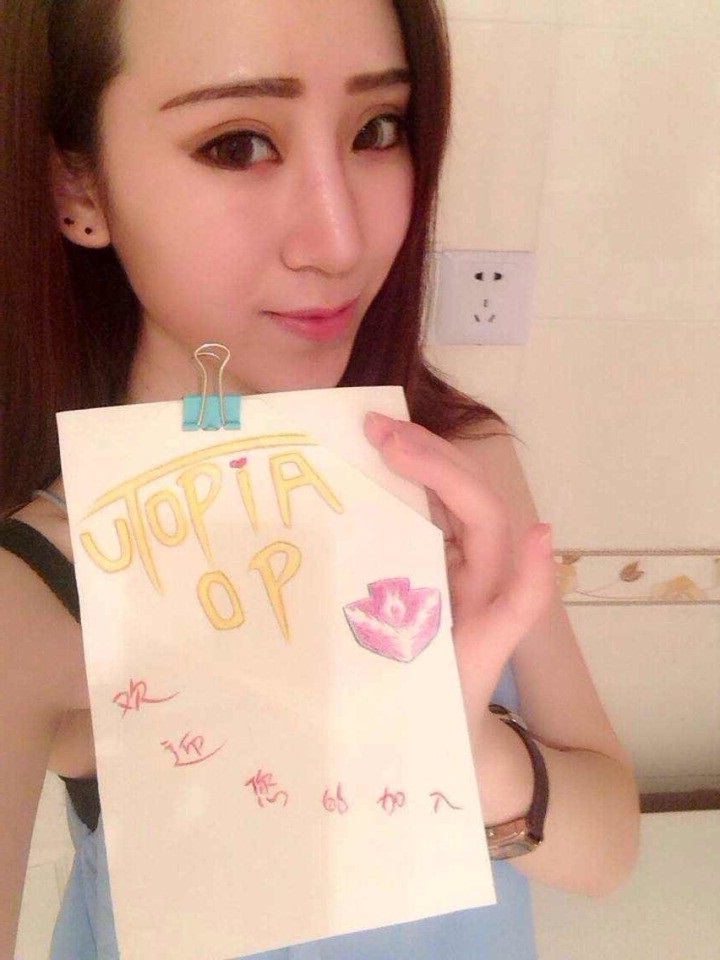 UTOPiA
OP
欢
迎
您的加入